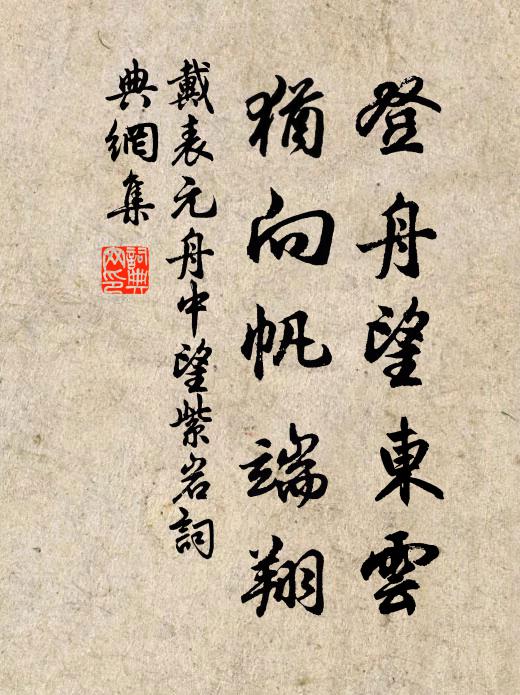 登舟望東雲
猶向帆端翔
戴表元舟中望紫岩詞
典網集
詞典網印